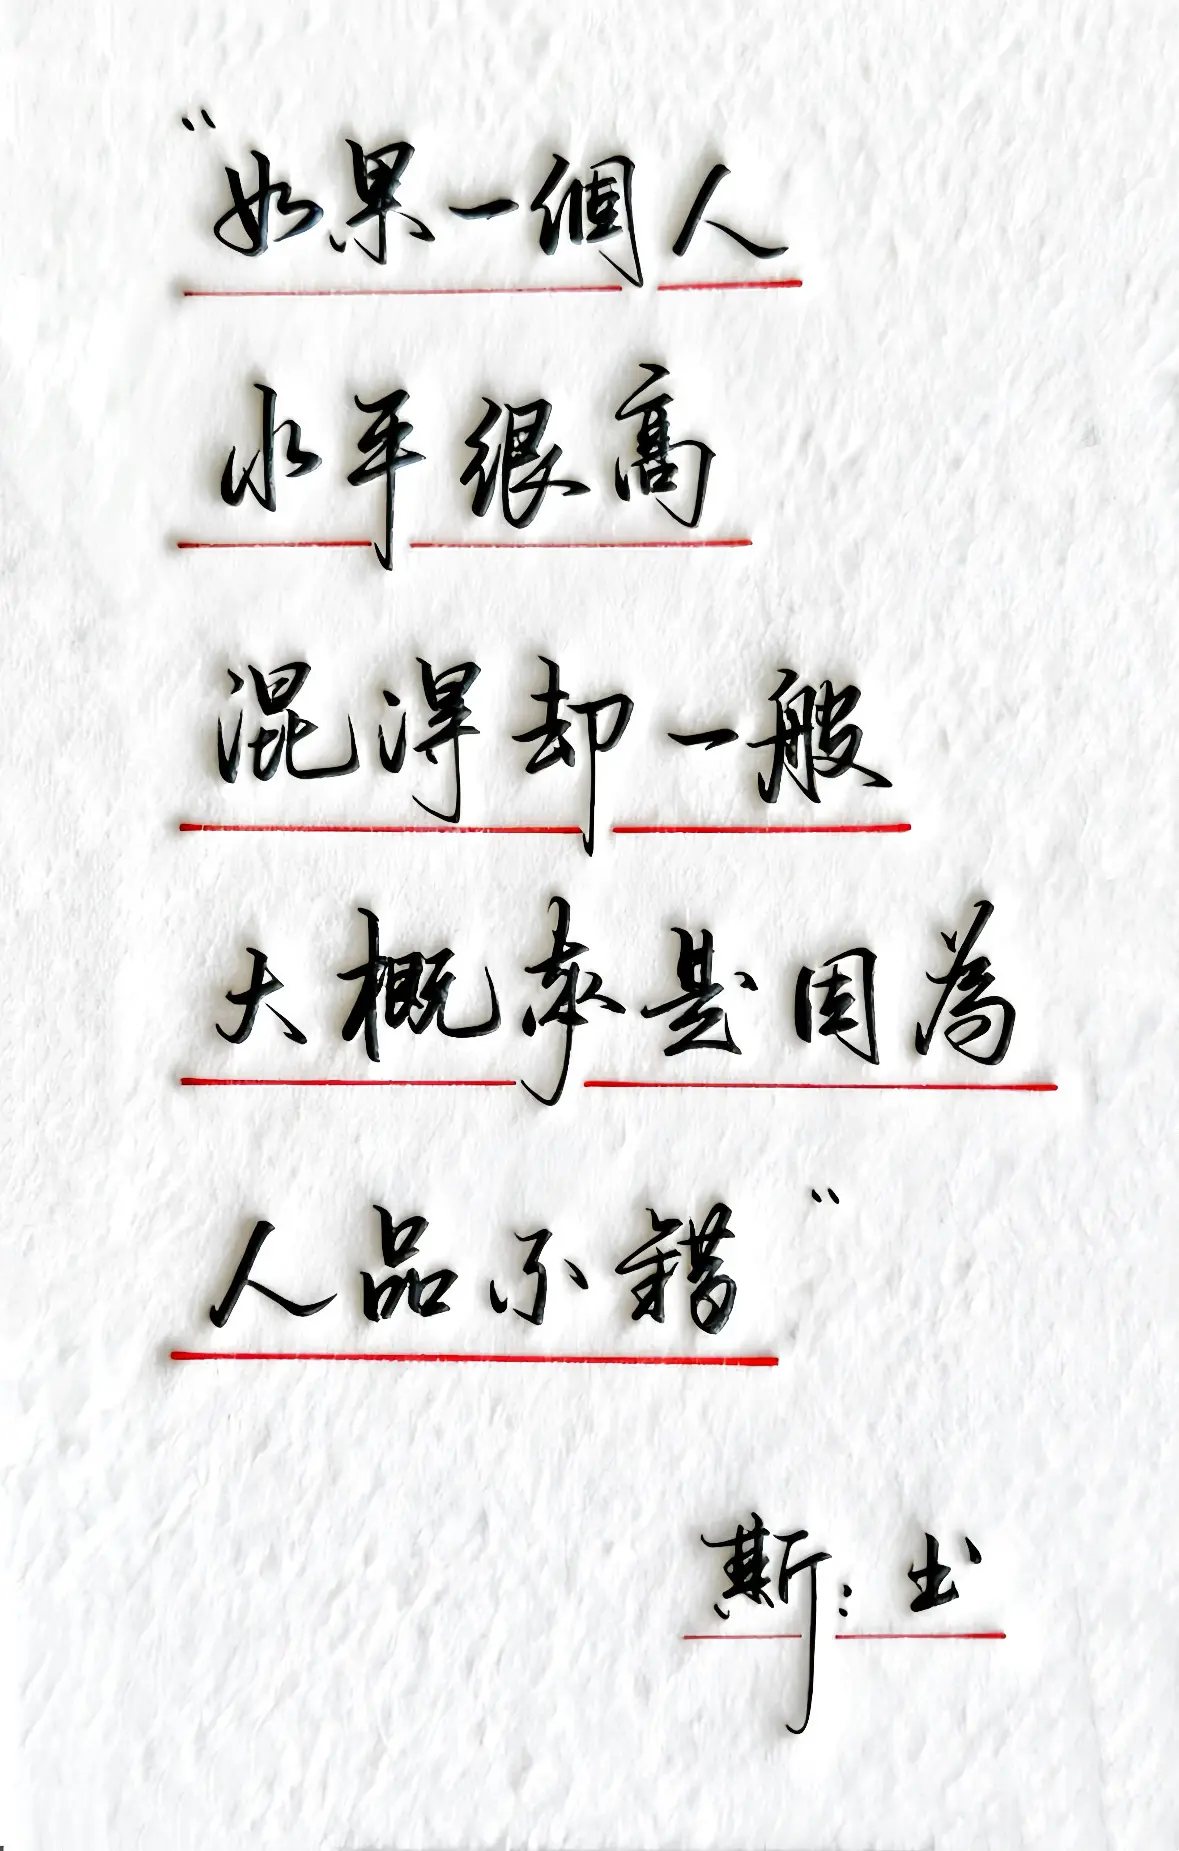 “如果一個人
水平很高
混得却一般
大概率是因為
人品不错”
斯：书